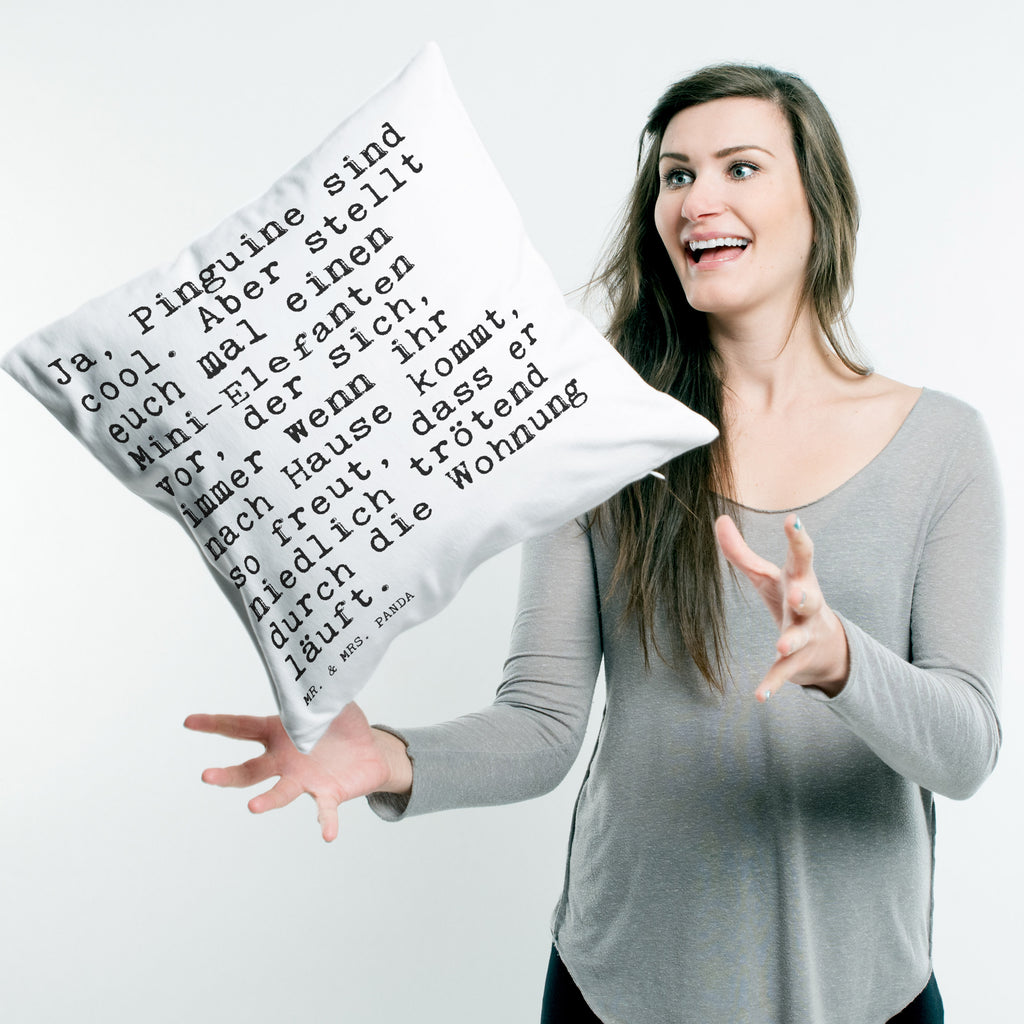 Ja, Pinguine sind
cool. Aber stellt
euch mal einen
Mini-Elefanten
vor, der sich,
immer wenn ihr
nach Hause kommt,
so freut, dass er
niedlich trötend
durch die Wohnung
läuft.
MR. & MRS. PANDA